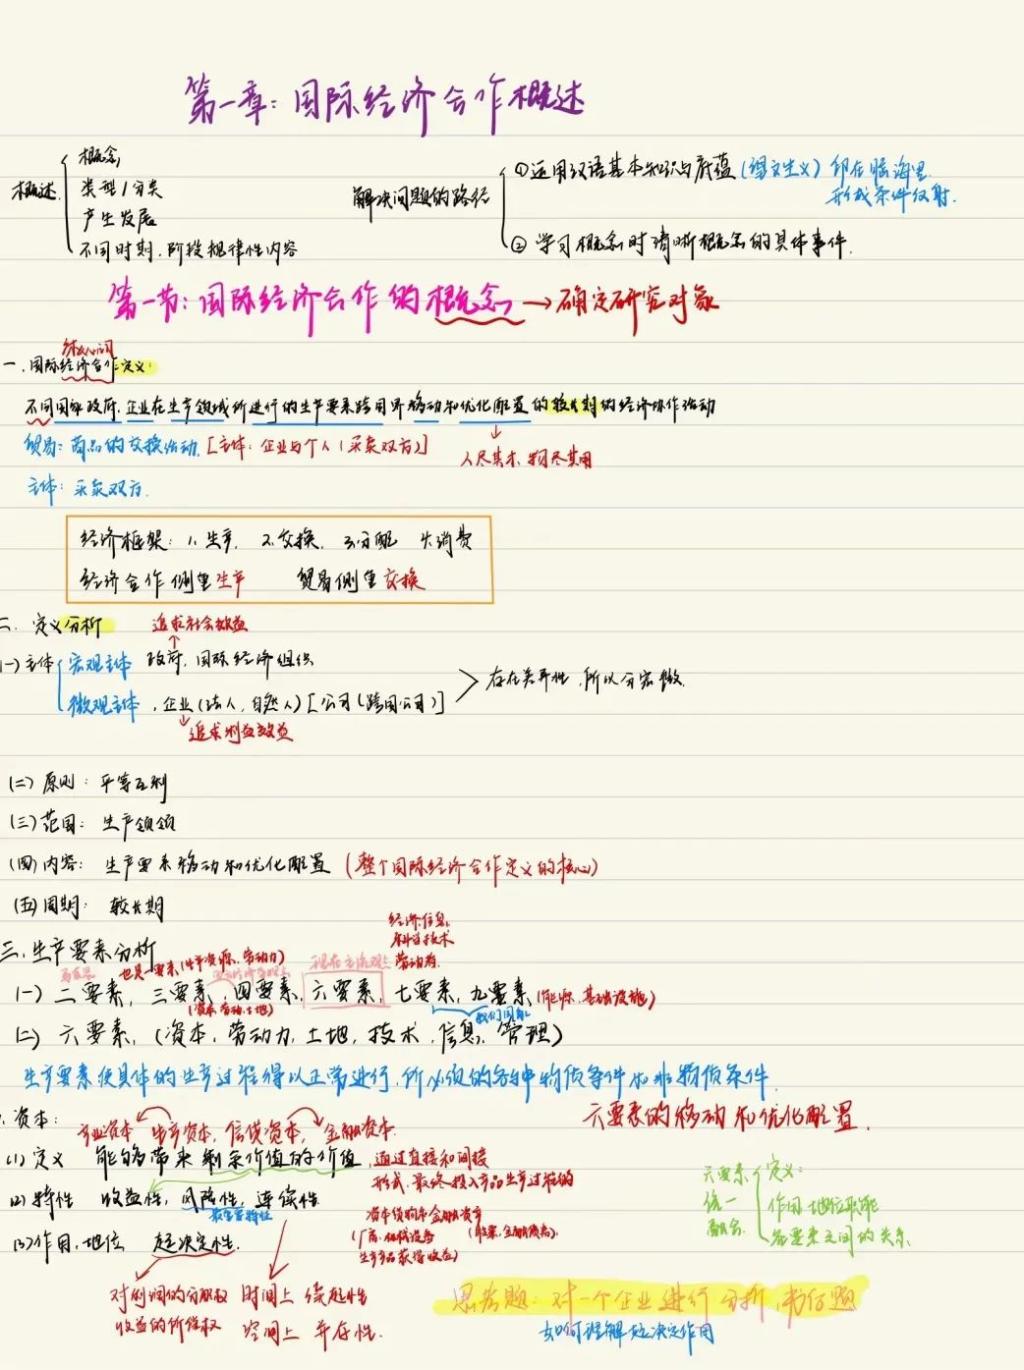 第一章：国际经济合作概述
概述 概念
类型/分类
产生发展
不同时刻.阶段规律性内容
解决问题的路径
①运用汉语基本知识与底蕴(望文生义) 印在脑海里
形成条件反射.
② 学习概念时清晰概念的具体事件.
第一节：国际经济合作的概念→确定研究对象
一.国际经济合作定义：
不同国家政府.企业在生产领域所进行的生产要素跨国界移动和优化配置的较长期的经济协作活动
贸易：商品的交换活动.[主体：企业与个人(买卖双方)]
人尽其才.物尽其用
主体：买卖双方.
经济框架：1.生产. 2.交换. 3.分配 4.消费
经济合作侧重生产 贸易侧重交换
二. 定义分析
追求社会效益
(一)主体 宏观主体 政府.国际经济组织
微观主体.企业(法人.自然人)[公司(跨国公司)]
存在差异性.所以分宏微.
追求利益效益
(二)原则：平等互利
(三)范围：生产领域
(四)内容：生产要素移动和优化配置(整个国际经济合作定义的核心)
(五)周期：较长期
经济信息.
科学技术
三.生产要素分析
(一)二要素，三要素，四要素，六要素，七要素，九要素(能源.基础设施)
(资本.劳动.土地)
(二) 六要素，(资本，劳动力，土地，技术，信息，管理)
生产要素使具体的生产过程得以正常进行.所必须的各种物质条件和非物质条件
六要素的移动和优化配置.
资本：
产业资本 生产资本，信贷资本，金融资本.
(1)定义 能够带来剩余价值的价值，通过直接和间接
形式.最终投入产品生产过程的
(2)特性 收益性，风险性，连续性
最重要特性
资本货物和金融资产
(厂房.机械设备 (股票.金融债券).
生产产品获得收益)
(3)作用.地位 起决定性.
对利润的分配权
收益的所得权
时间上 续起性
空间上 并存性.
六要素
统一
融会.
定义：
作用.地位职能
各要素之间的关系.
思考题：对一个企业进行分析,
如何理解起决定作用